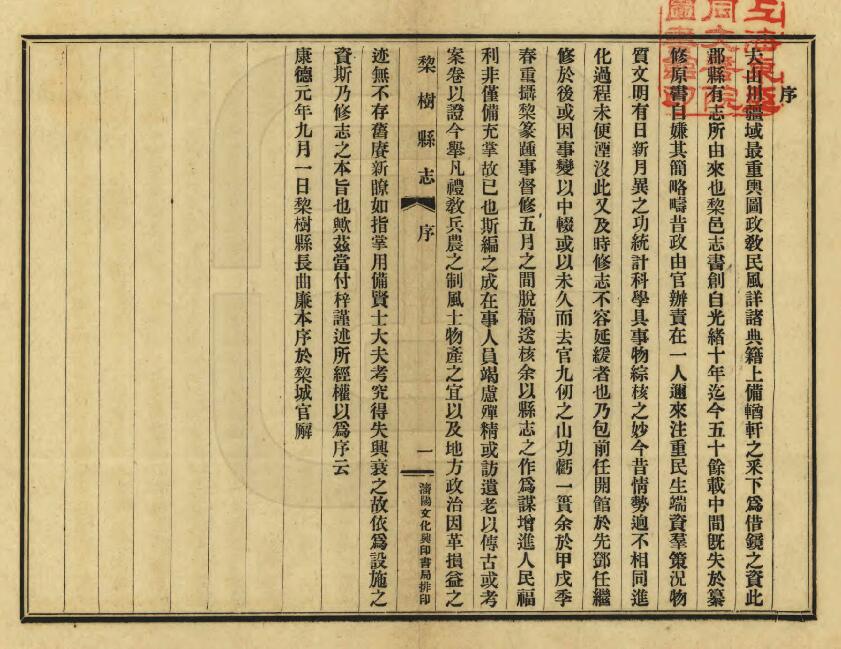 序
夫山川疆域最重輿圖政教民風詳諸典籍上備輶軒之采下爲借鏡之資此
郡縣有志所由來也黎邑志書創自光緒十年迄今五十餘載中間旣失於纂
修原書自嫌其簡略疇昔政由官辦責在一人邇來注重民生端資羣策況物
質文明有日新月異之功統計科學具事物綜核之妙今昔情勢逈不相同進
化過程未便湮沒此又及時修志不容延緩者也乃包前任開館於先鄧任繼
修於後或因事變以中輟或以未久而去官九仞之山功虧一簣余於甲戌季
春重攝黎篆踵事督修五月之間脫稿送核余以縣志之作爲謀增進人民福
利非僅備充掌故已也斯編之成在事人員竭慮殫精或訪遺老以傳古或考
案卷以證今舉凡禮教兵農之制風土物產之宜以及地方政治因革損益之
黎樹縣志
序
一
瀋陽文化興印書局排印
迹無不存舊賡新瞭如指掌用備賢士大夫考究得失興衰之故依爲設施之
資斯乃修志之本旨也歟茲當付梓謹述所經權以爲序云
康德元年九月一日黎樹縣長曲廉本序於黎城官廨